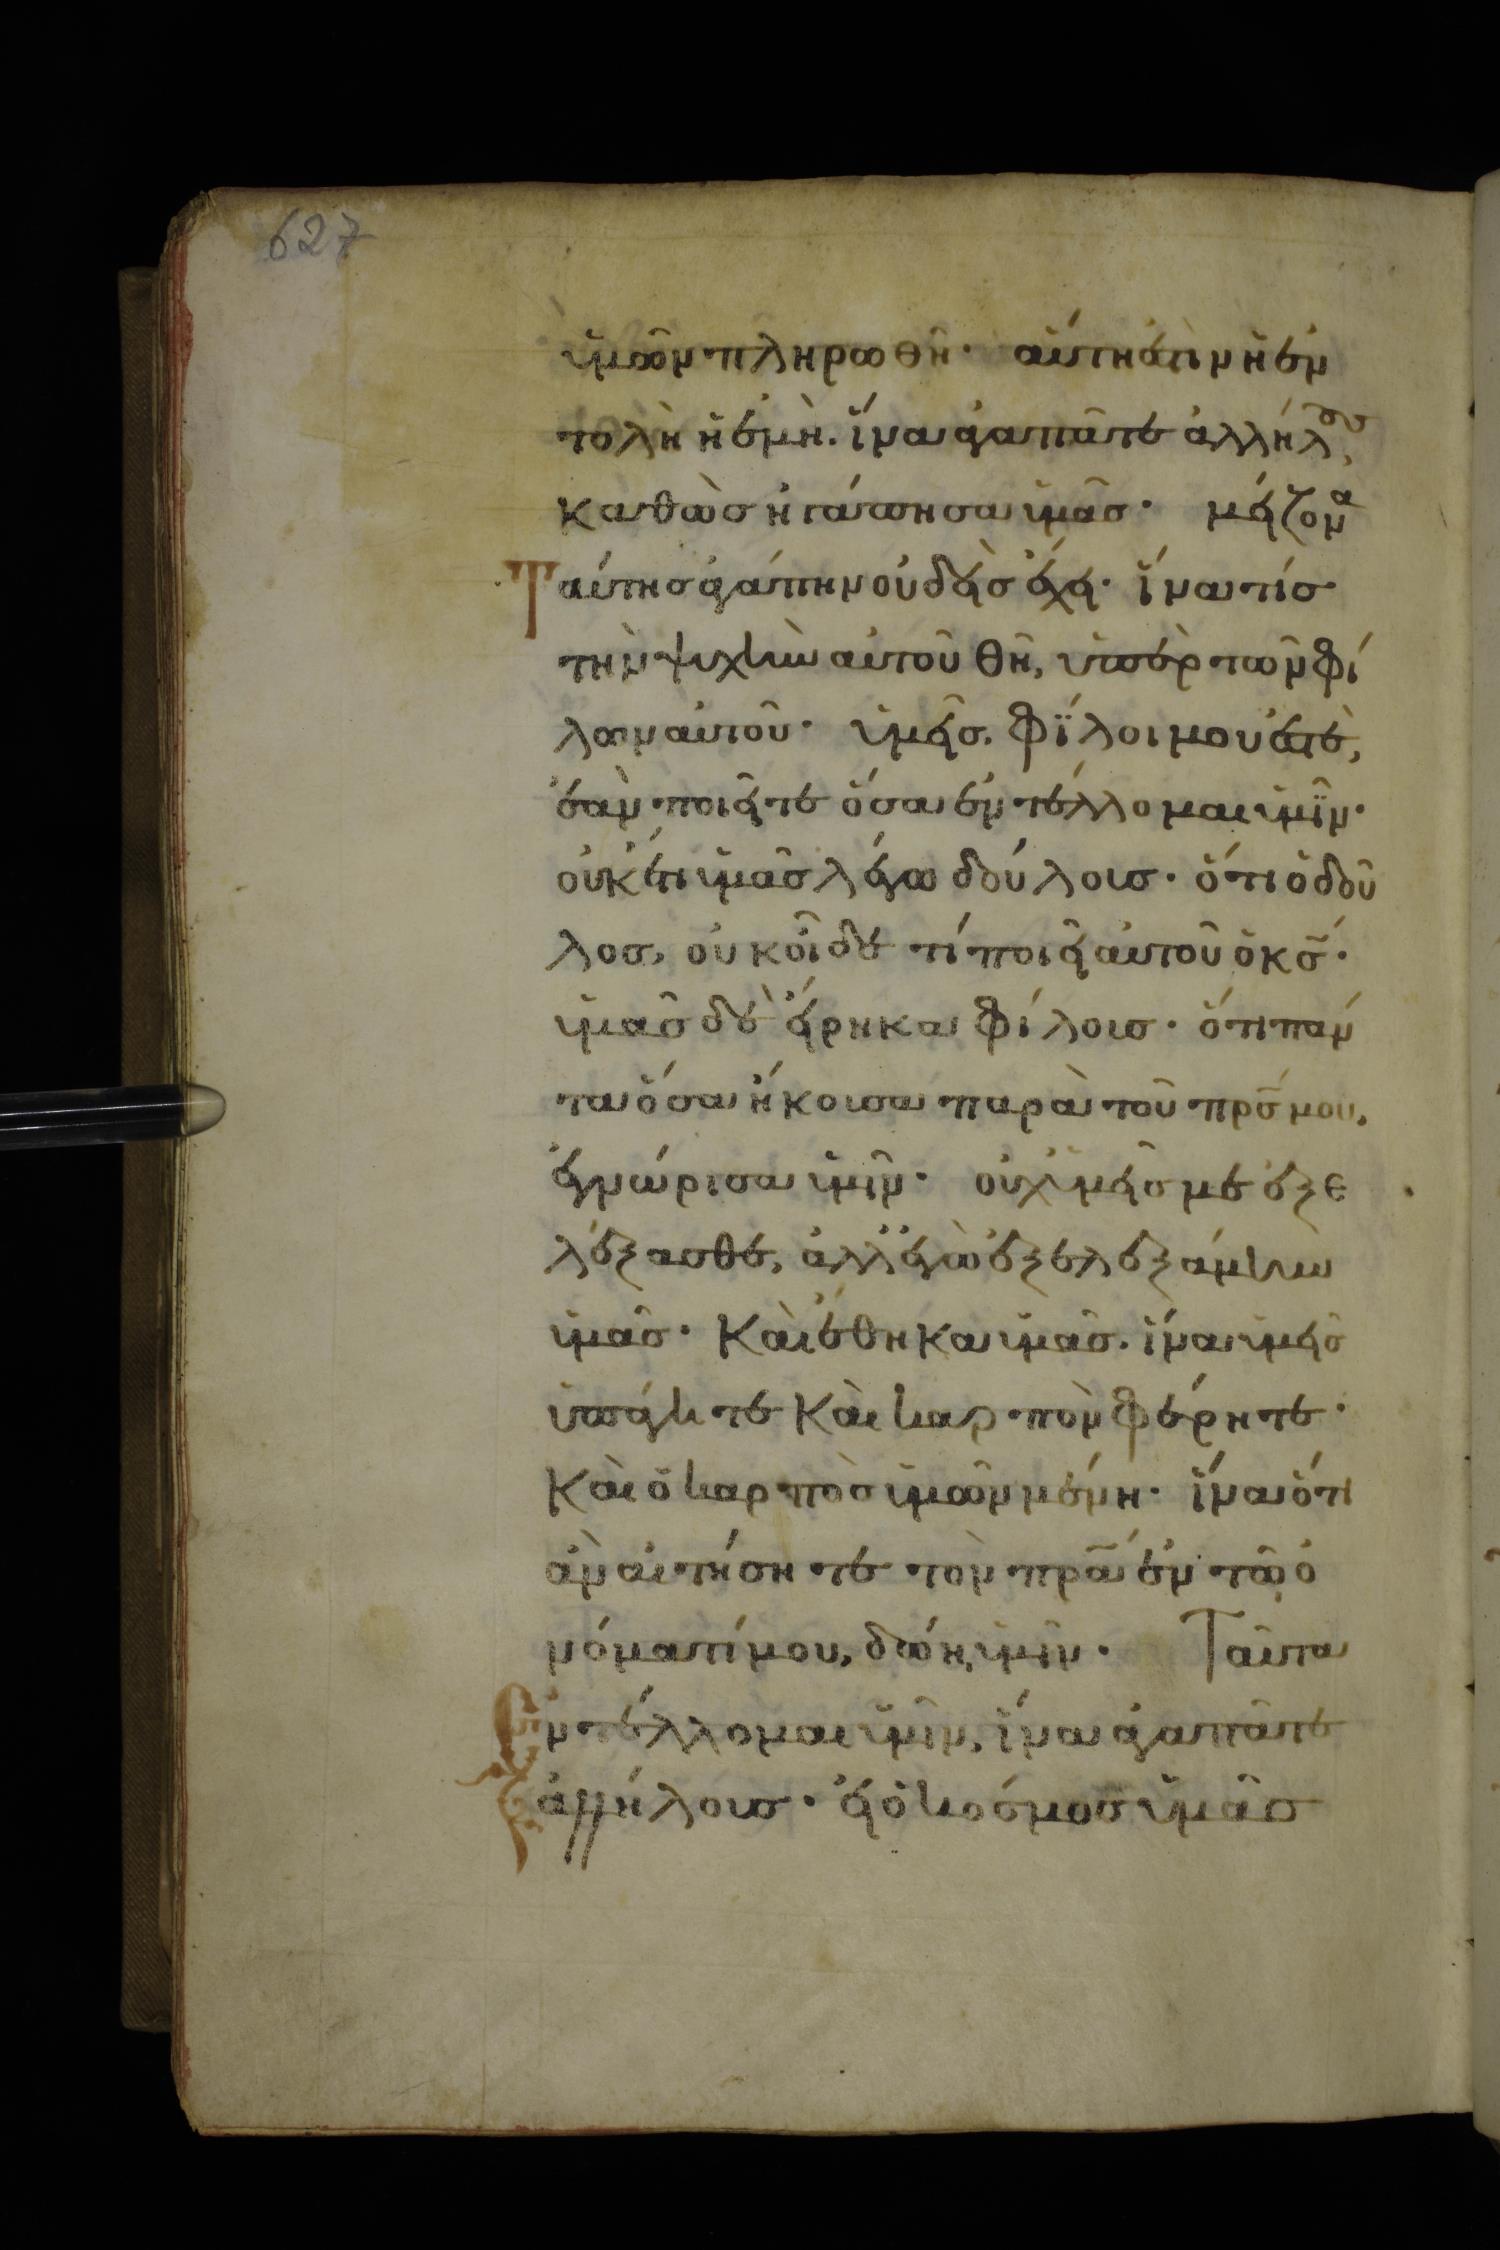 627
ὑμῶν πληρωθῆ· αὕτη ἐστὶν ἡ ἐν
τολὴ ἡ ἐμὴ. ἵνα ἀγαπᾶτε ἀλλήλους,
καθὼς ἠγάπησα ὑμᾶς· μείζονα
Ταύτης ἀγάπην οὐδεὶς ἔχει· ἵνα τίς
τὴν ψυχὴν αὐτοῦ θῆ, ὑπὲρ τῶν φί
λων αὐτοῦ· ὑμεῖς. φίλοι μου ἐστὲ,
ἐὰν ποιεῖτε ὅσα ἐντέλλομαι ὑμῖν·
οὐκέτι ὑμᾶς λέγω δούλους· ὅτι ὁ δοῦ
λος, οὐκ οἶδε τί ποιεῖ αὐτοῦ ὁ κς·
ὑμᾶς δὲ εἴρηκα φίλους· ὅτι πάν
τα ὅσα ἤκουσα παρὰ τοῦ πρς μου,
ἐγνώρισα ὑμῖν· οὐχ ὑμεῖς με ἐξε
λέξασθε, ἀλλ' ἐγὼ ἐξελεξάμην
ὑμᾶς· Καὶ ἔθηκα ὑμᾶς. ἵνα ὑμεῖς
ὑπάγητε Καὶ καρπὸν φέρητε·
Καὶ ὁ καρπὸς ὑμῶν μένη· ἵνα ὅτι
ἀν αἰτήσητε τὸν πρα ἐν τῶ ὀ
νόματί μου, δώη ὑμῖν· Ταῦτα
Ἐντέλλομαι ὑμῖν, ἵνα ἀγαπᾶτε
ἀλλήλους· εἰ ὁ κόσμος ὑμᾶς